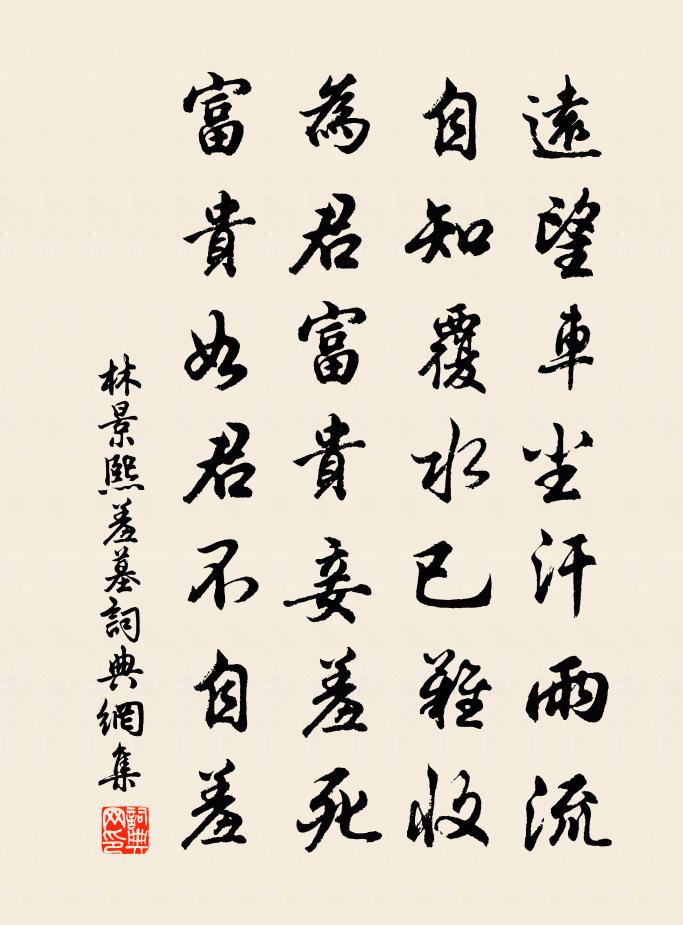 遠望車尘汗雨流
自知覆水已難收
為君富貴妾羞死
富貴如君不自羞
林景熙羞墓詞典網集
詞典網印